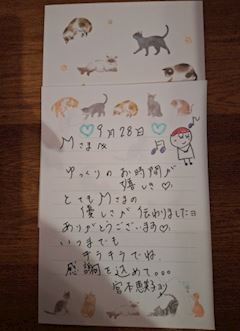 9月28日
Mさま
ゆっくりの お時間が
嬉しき♡
とてもMさまの
優しさが 伝わりましたヨ
ありがとうございます♡
いつまでも
キラキラでね
感謝を込めて。。。
宮本恵子より